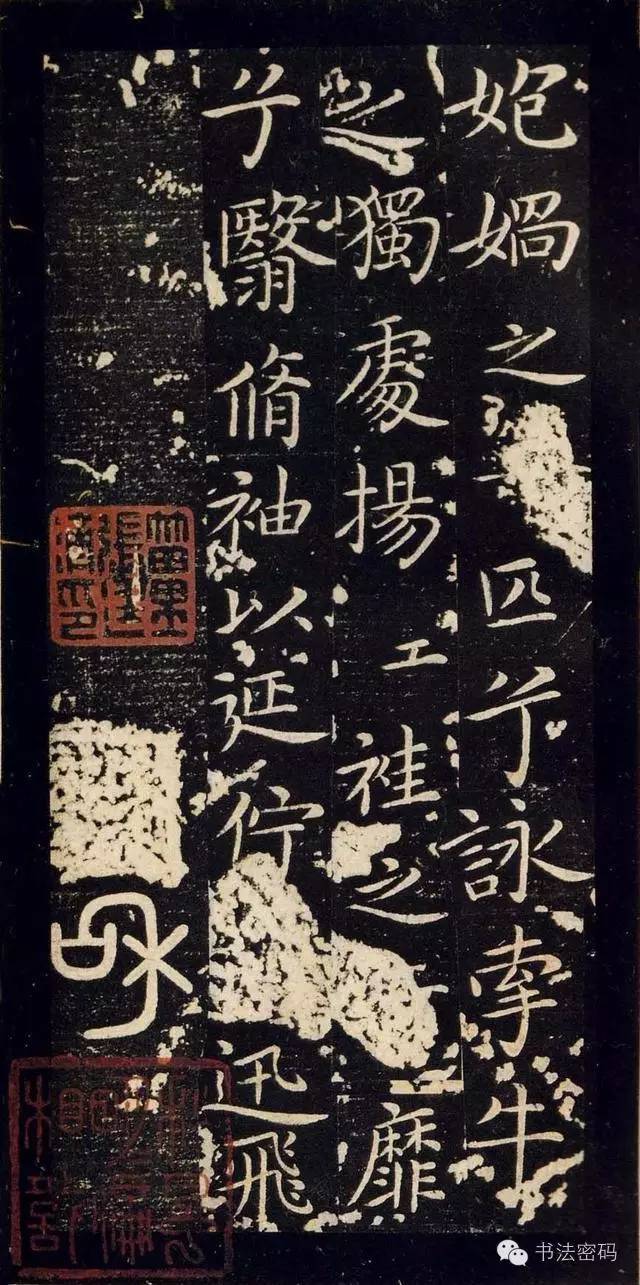 媧之匹兮詠牽牛
之獨處揚袿之靡
兮翳脩袖以延佇迅飛
书法密码